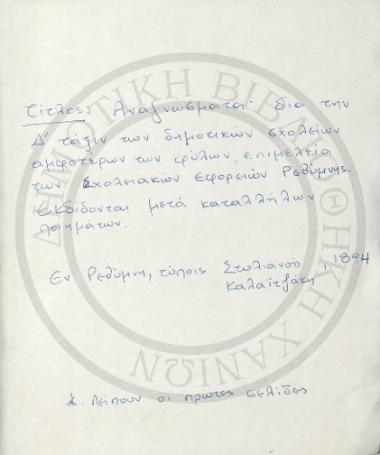 Τίτλος: Αναγνώσματα: δια την
Δ' τάξιν των δημοτικών σχολείων
αμφοτέρων των φύλων, επιμελεία
των Σχολειακών Εφορειών Ρεθύμνης.
Εκδίδονται μετά καταλλήλων
ποιημάτων.
Εν Ρεθύμνη, τύποις Στυλιανού
Καλαϊτζάκη, 1894
Λείπουν οι πρώτες σελίδες
ΔΗΜΟΤΙΚΗ ΒΙΒΛΙΟΘΗΚΗ ΧΑΝΙΩΝ